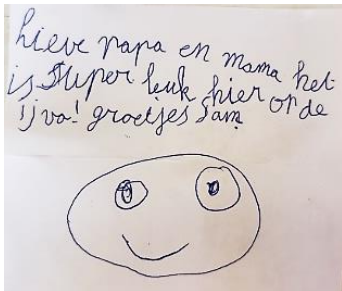 lieve papa en mama het
is super leuk hier op de
ijva! groetjes Sam